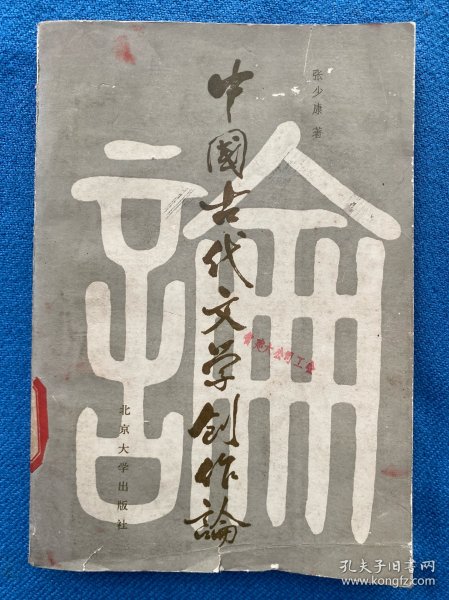 論
張少康 著
中國古代文学創作論
北京大学出版社
孔夫子旧书网
www.kongfz.com